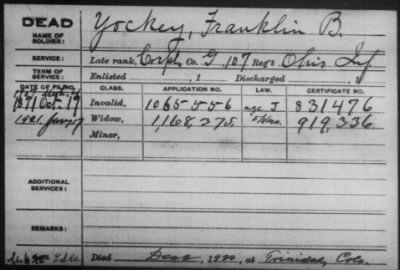 DEAD
NAME OF SOLDIER:
Yockey, Franklin B.
SERVICE:
Late rank, Corpl, Co. G, 107 Reg't Ohio Inf
TERM OF SERVICE:
Enlisted , 1 Discharged , 1
DATE OF FILING. CLASS. APPLICATION NO. LAW. CERTIFICATE NO.
1891 Oct 19 Invalid, 1065556 age J 831476
1921 Jany 17 Widow, 1,168,275 919,336
Minor,
ADDITIONAL SERVICES:
REMARKS:
Died , 1920, at Trinidad, Colo.